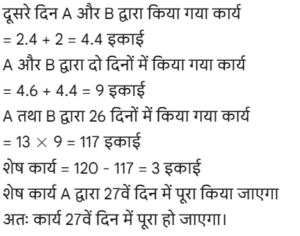 दूसरे दिन A और B द्वारा किया गया कार्य
= 2.4 + 2 = 4.4 इकाई
A और B द्वारा दो दिनों में किया गया कार्य
= 4.6 + 4.4 = 9 इकाई
A तथा B द्वारा 26 दिनों में किया गया कार्य
= 13 × 9 = 117 इकाई
शेष कार्य = 120 - 117 = 3 इकाई
शेष कार्य A द्वारा 27वें दिन में पूरा किया जाएगा
अतः कार्य 27वें दिन में पूरा हो जाएगा।